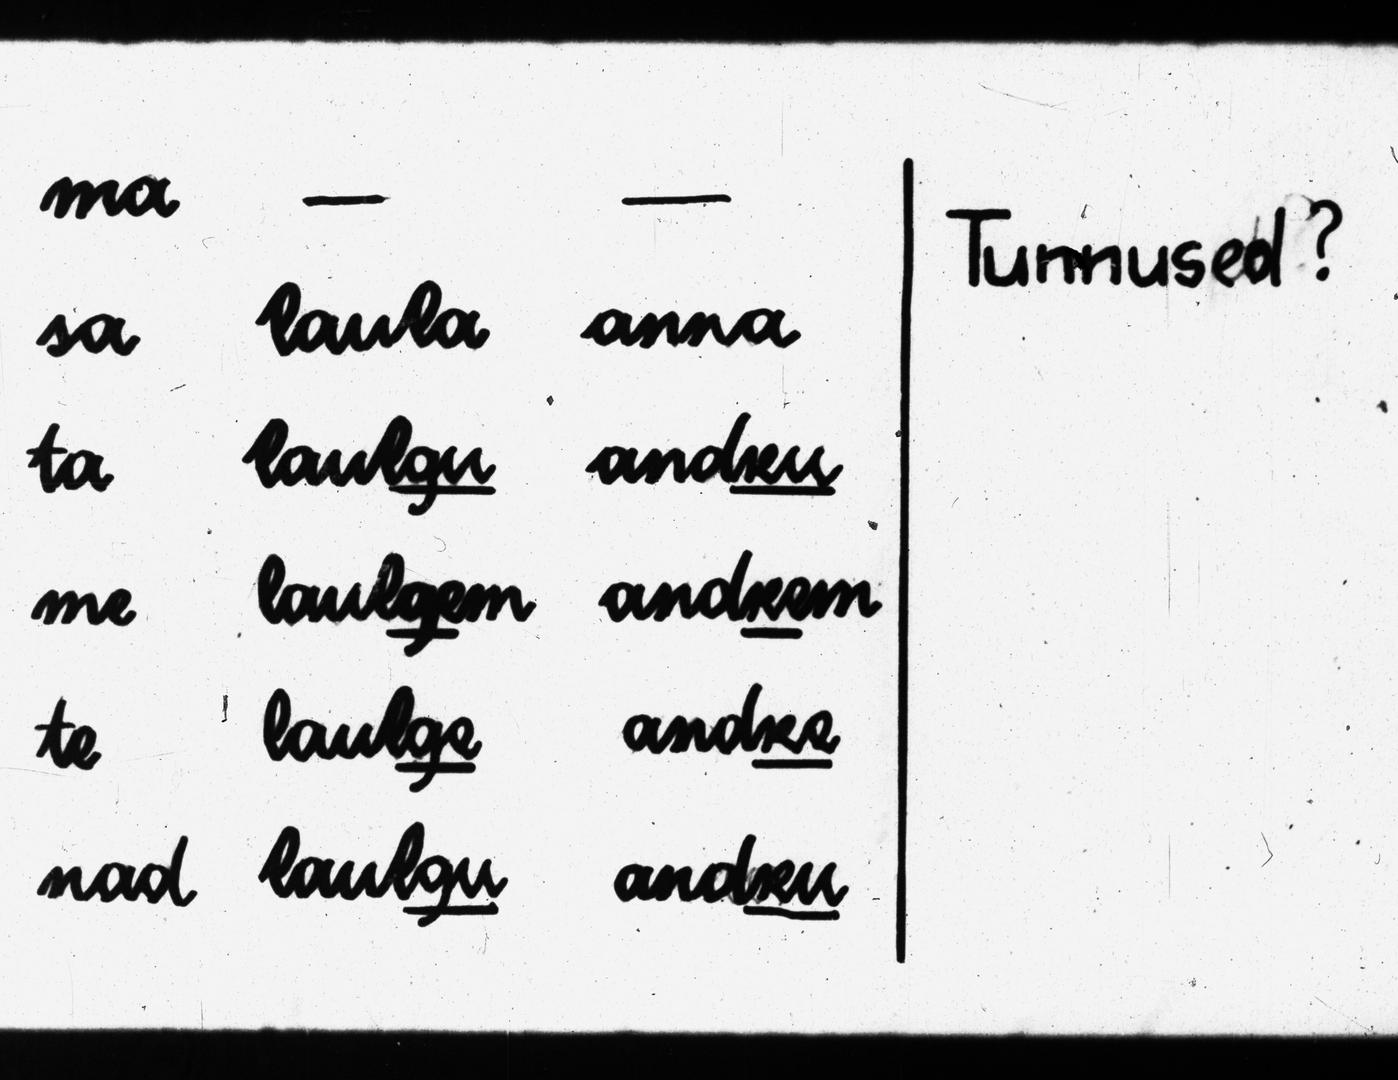 ma — —
sa laula anna
ta laulgu andku
me laulgem andkem
te laulge andke
nad laulgu andku
Tunnused?